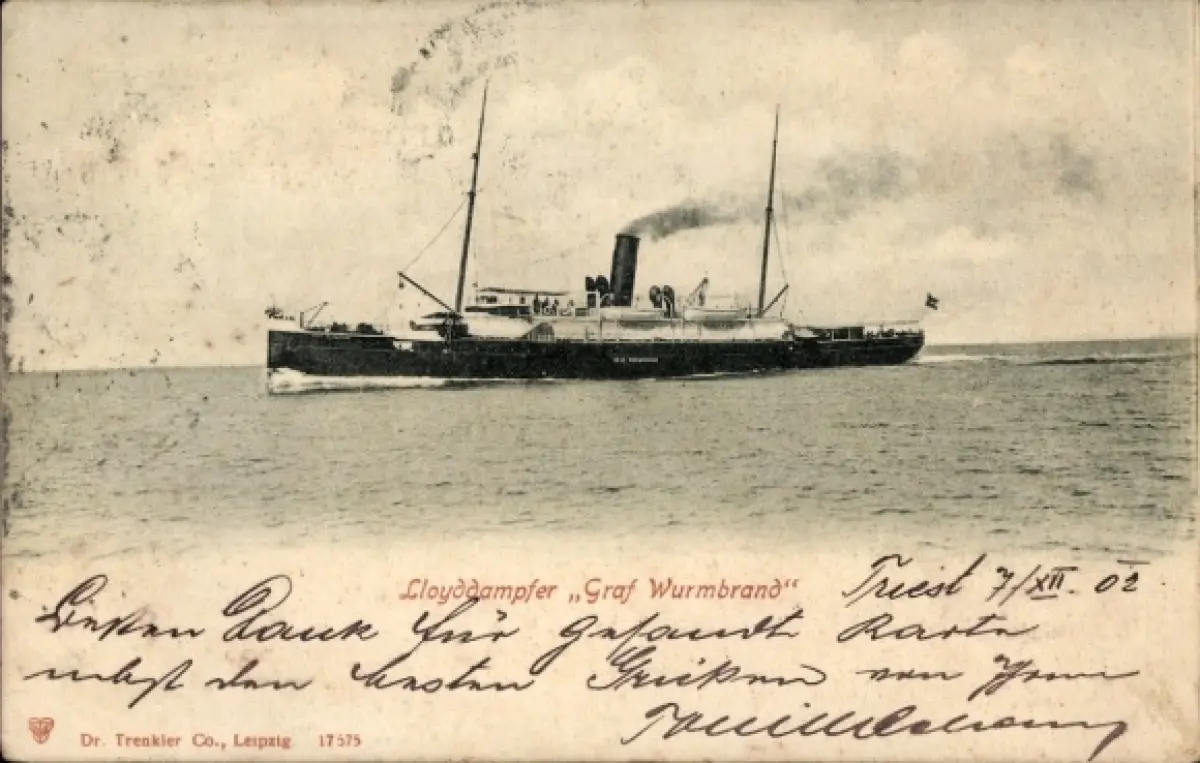 Lloyddampfer „Graf Wurmbrand“
Triest 7/XII. 02
Besten Dank für gesandte Karte
nebst den besten Grüßen von
Dr. Trenkler Co., Leipzig 17575